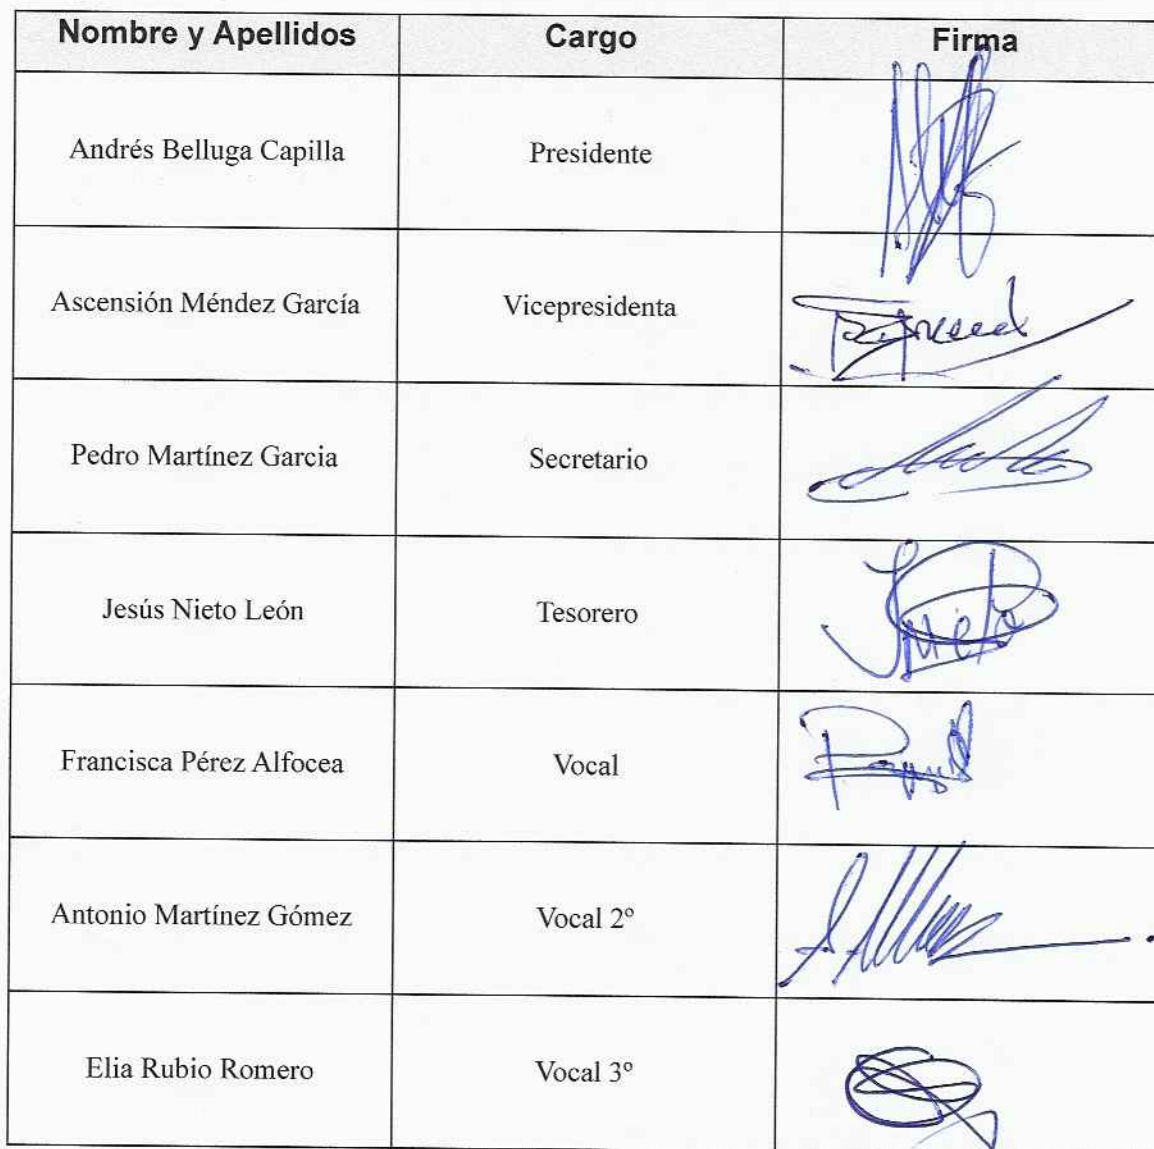 Nombre y Apellidos Cargo Firma
Andrés Belluga Capilla Presidente
Ascensión Méndez García Vicepresidenta
Pedro Martínez Garcia Secretario
Jesús Nieto León Tesorero
Francisca Pérez Alfocea Vocal
Antonio Martínez Gómez Vocal 2º
Elia Rubio Romero Vocal 3º